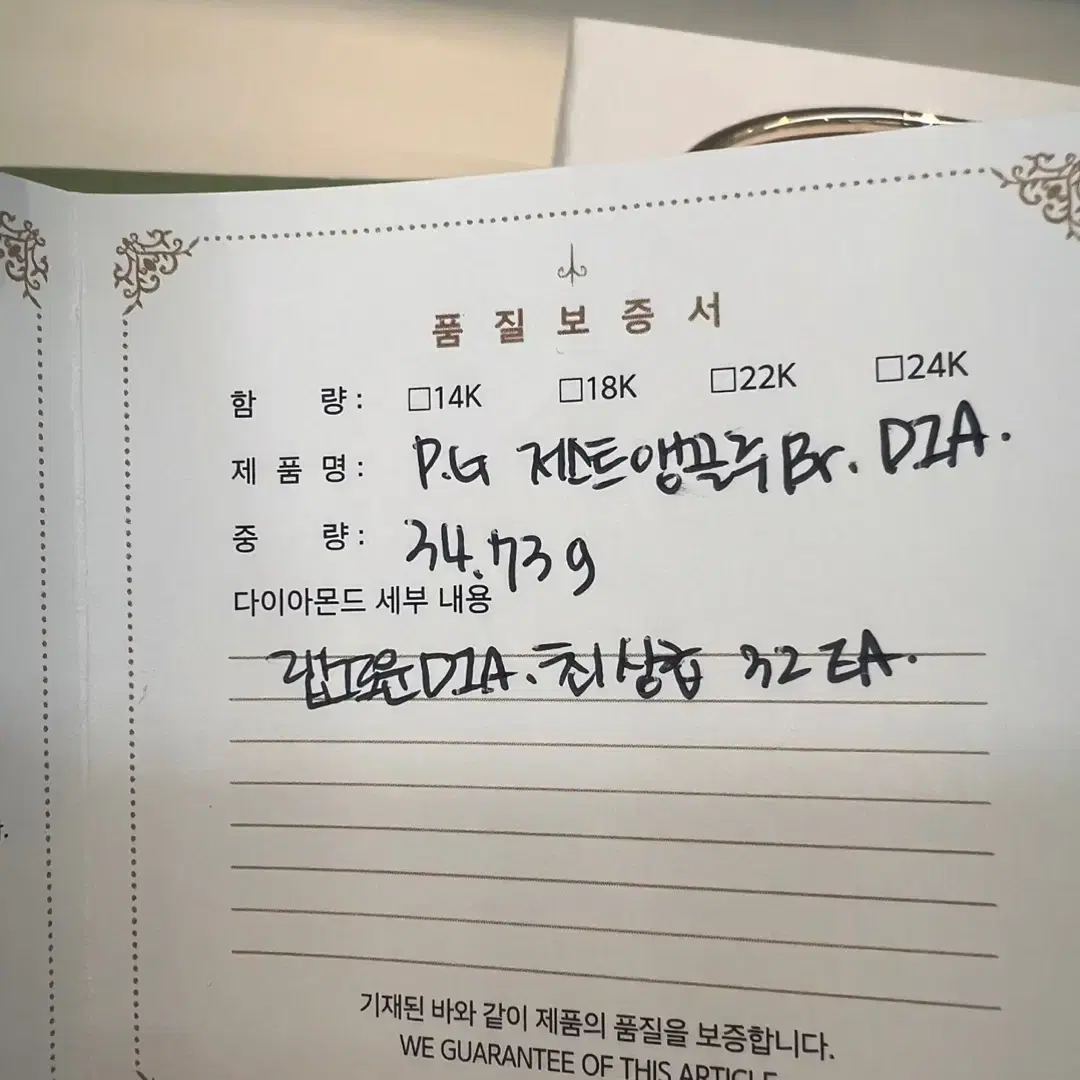 품질보증서
함 량 : □14K □18K □22K □24K
제 품 명 : P.G 저스트앵끌주 Br. DIA.
중 량 : 34.73g
다이아몬드 세부 내용
랩그로운DIA. 최상급 32 EA.
기재된 바와 같이 제품의 품질을 보증합니다.
WE GUARANTEE OF THIS ARTICLE